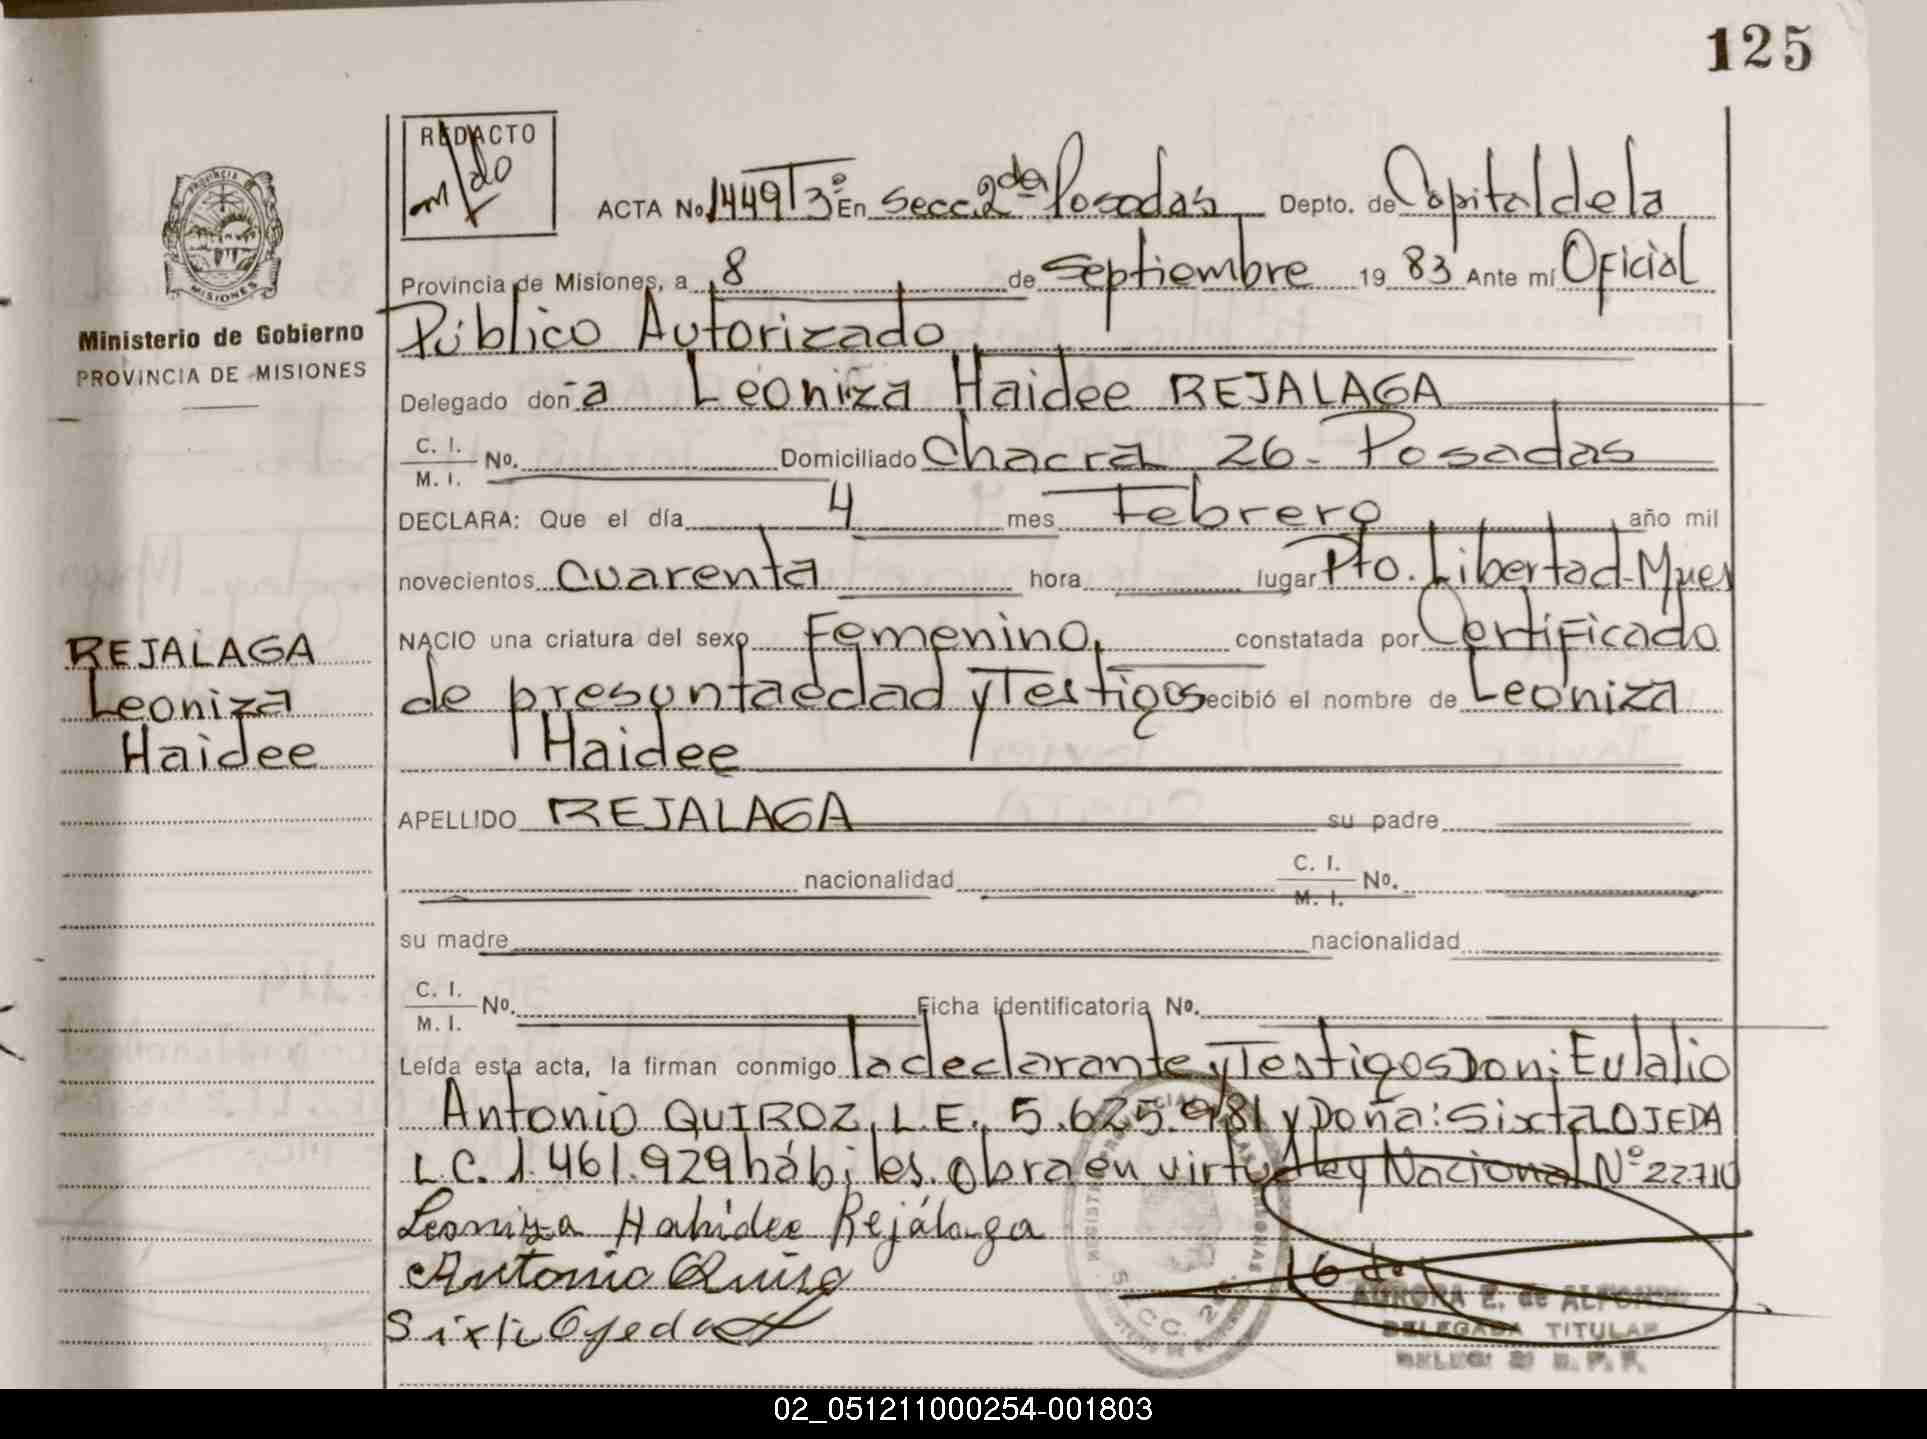 125
REDACTO
ACTA No. 1449 T 3º En Secc. 2da Posadas Depto. de Capital de la
Provincia de Misiones, a 8 de Septiembre 19 83 Ante mí Oficial
Público Autorizado
PROVINCIA DE
MISIONES
Ministerio de Gobierno
PROVINCIA DE MISIONES
Delegado don a Leoniza Haidee REJALAGA
C. I.
M. I. No. Domiciliado Chacra 26 - Posadas
DECLARA: Que el día 4 mes Febrero año mil
novecientos cuarenta hora lugar Pto. Libertad - Mnes
NACIO una criatura del sexo Femenino, constatada por Certificado
de presunta edad y Testigos recibió el nombre de Leoniza
Haidee
REJALAGA
Leoniza
Haidee
APELLIDO REJALAGA su padre
nacionalidad C. I.
M. I. No.
su madre nacionalidad
C. I.
M. I. No. Ficha identificatoria No.
Leída esta acta, la firman conmigo la declarante y Testigos Don: Eulalio
Antonio QUIROZ, L.E. 5.625.981 y Doña: Sixta OJEDA
L.C. 1.461.929 hábiles. Obra en virtud ley Nacional Nº 22.710
Leoniza Hahidee Rejálaga
Antonio Quiroz
Sixta Ojeda
SECC. 2da.
AURORA E. de ALFONSO
DELEGADA TITULAR
02_051211000254-001803